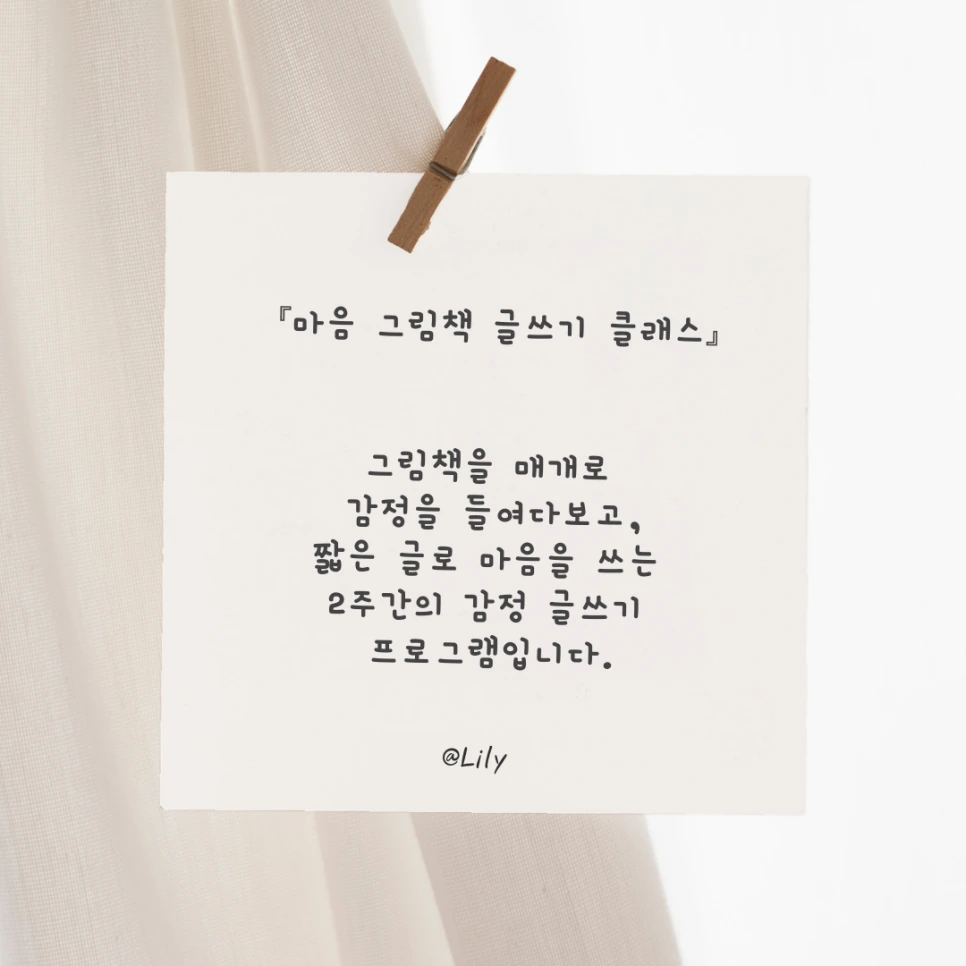 『마음 그림책 글쓰기 클래스』
그림책을 매개로
감정을 들여다보고,
짧은 글로 마음을 쓰는
2주간의 감정 글쓰기
프로그램입니다.
@Lily